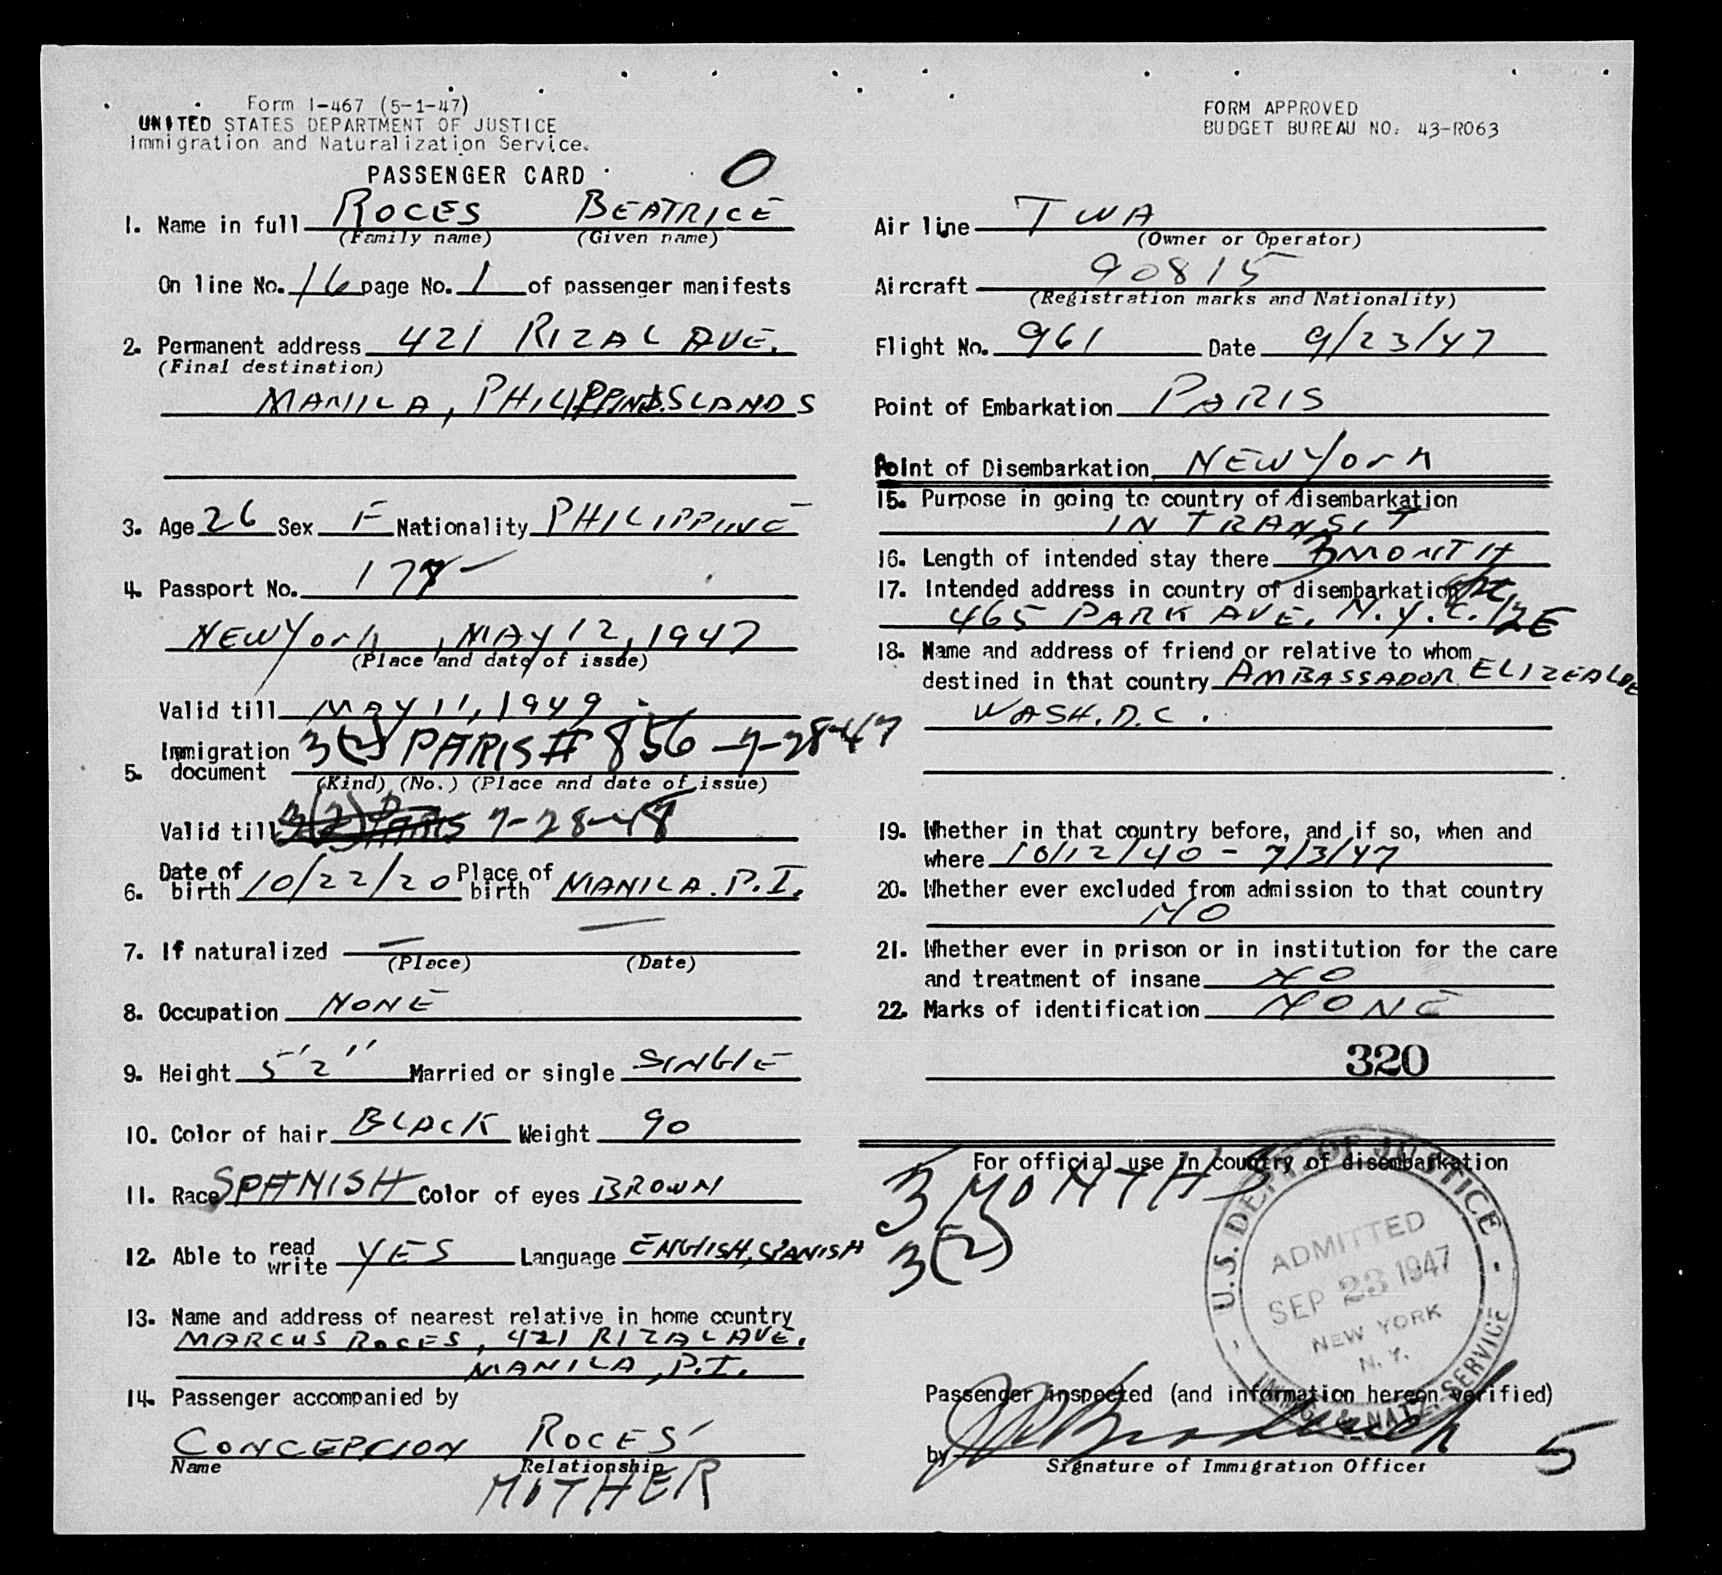 Form I-467 (5-1-47)
UNITED STATES DEPARTMENT OF JUSTICE
Immigration and Naturalization Service.
PASSENGER CARD
O
FORM APPROVED
BUDGET BUREAU NO. 43-R063
1. Name in full ROCES BEATRICE
(Family name) (Given name)
On line No. 16 page No. 1 of passenger manifests
2. Permanent address 421 RIZAL AVE.
(Final destination)
MANILA, PHILIPPINE ISLANDS
3. Age 26 Sex F Nationality PHILIPPINE
4. Passport No. 178
NEW York, MAY 12, 1947
(Place and date of issue)
Valid till MAY 11, 1949
5. Immigration document 3(2) PARIS # 856 - 7-28-47
(Kind) (No.) (Place and date of issue)
Valid till 7-28-48
6. Date of birth 10/22/20 Place of birth MANILA. P.I.
7. If naturalized — —
(Place) (Date)
8. Occupation NONE
9. Height 5'2" Married or single SINGLE
10. Color of hair BLACK Weight 90
11. Race SPANISH Color of eyes BROWN
12. Able to read write YES Language ENGLISH, SPANISH
13. Name and address of nearest relative in home country
MARCUS ROCES, 421 RIZAL AVE.
MANILA, P.I.
14. Passenger accompanied by
CONCEPCION ROCES
Name Relationship
MOTHER
Air line TWA
(Owner or Operator)
Aircraft 90815
(Registration marks and Nationality)
Flight No. 961 Date 9/23/47
Point of Embarkation PARIS
Point of Disembarkation NEW York
15. Purpose in going to country of disembarkation
IN TRANSIT
16. Length of intended stay there 3 MONTH
17. Intended address in country of disembarkation
465 PARK AVE. N.Y.C. 12E
18. Name and address of friend or relative to whom
destined in that country AMBASSADOR ELIZEALDE
WASH. D.C.
19. Whether in that country before, and if so, when and
where 10/12/40 - 7/3/47
20. Whether ever excluded from admission to that country
NO
21. Whether ever in prison or in institution for the care
and treatment of insane NO
22. Marks of identification NONE
320
For official use in country of disembarkation
3 MONTHS
3(2)
U.S. DEPT. OF JUSTICE
ADMITTED
SEP 23 1947
NEW YORK
N.Y.
IMMIG. & NATZ. SERVICE
Passenger inspected (and information hereon verified)
by
Signature of Immigration Officer
5